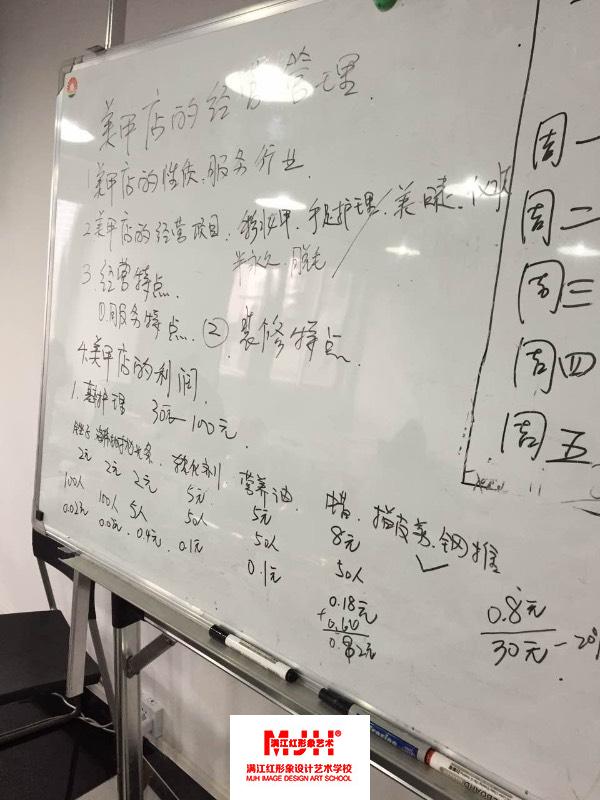 美甲店的经营管理.
1.美甲店的性质.服务行业.
2.美甲店的经营项目. 手足护理/美睫.
半永久.脱毛
3.经营特点.
①.服务特点. ②.装修特点.
4.美甲店的利润.
1. 护理 30元—100元.
软化剂 营养油 指皮剪.钢推
2元 2元 2元 5元 5元 8元
100人 100人 5人 50人 50人 50人
0.02元 0.4元. 0.1元 0.1元
0.18元
0.8元
30元
周一
周二
周三
周四
周五
MJH
满江红形象艺术
满江红形象设计艺术学校
MJH IMAGE DESIGN ART SCHOOL